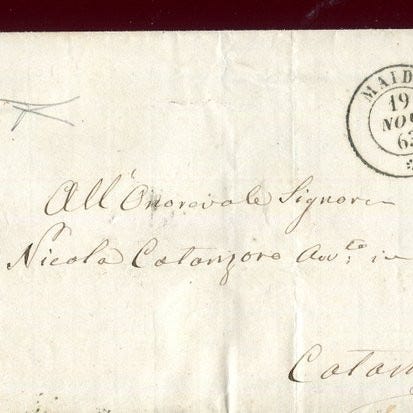 MAID
19
NOV
63
All' Onorevole Signore
Nicola Catanzaro Avv.to in
Catan